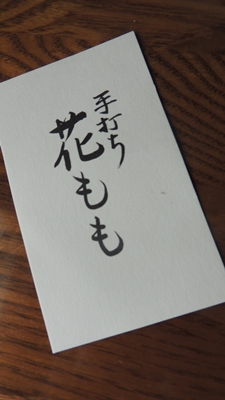 手打ち
花もも